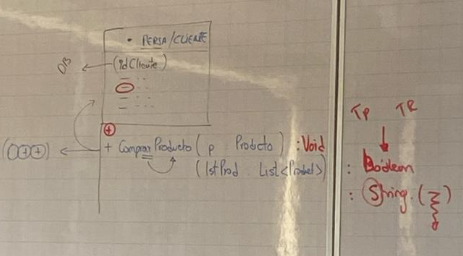 • PERSA/CLIENTE
(idCliente)
DB
TP TR
+ Comprar Producto ( p : Producto ) : Void
(lstProd : List<Product>) : Boolean
: String ( {} )